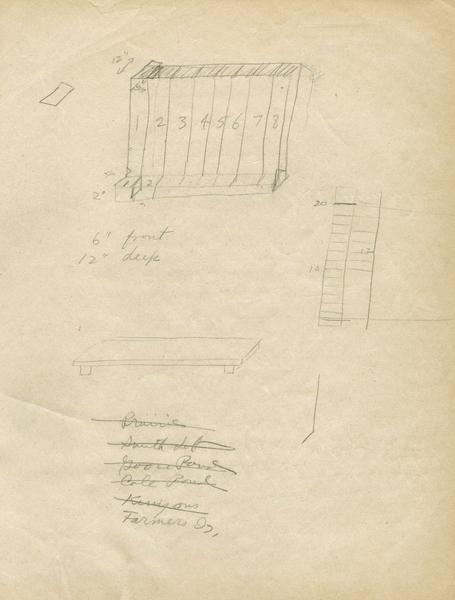 12"
1 2 3 4 5 6 7 8
2
2"
6" front
12" deep
20
12
Prairie
South
Goose Pond
Cole Pond
Kenyons
Farmers